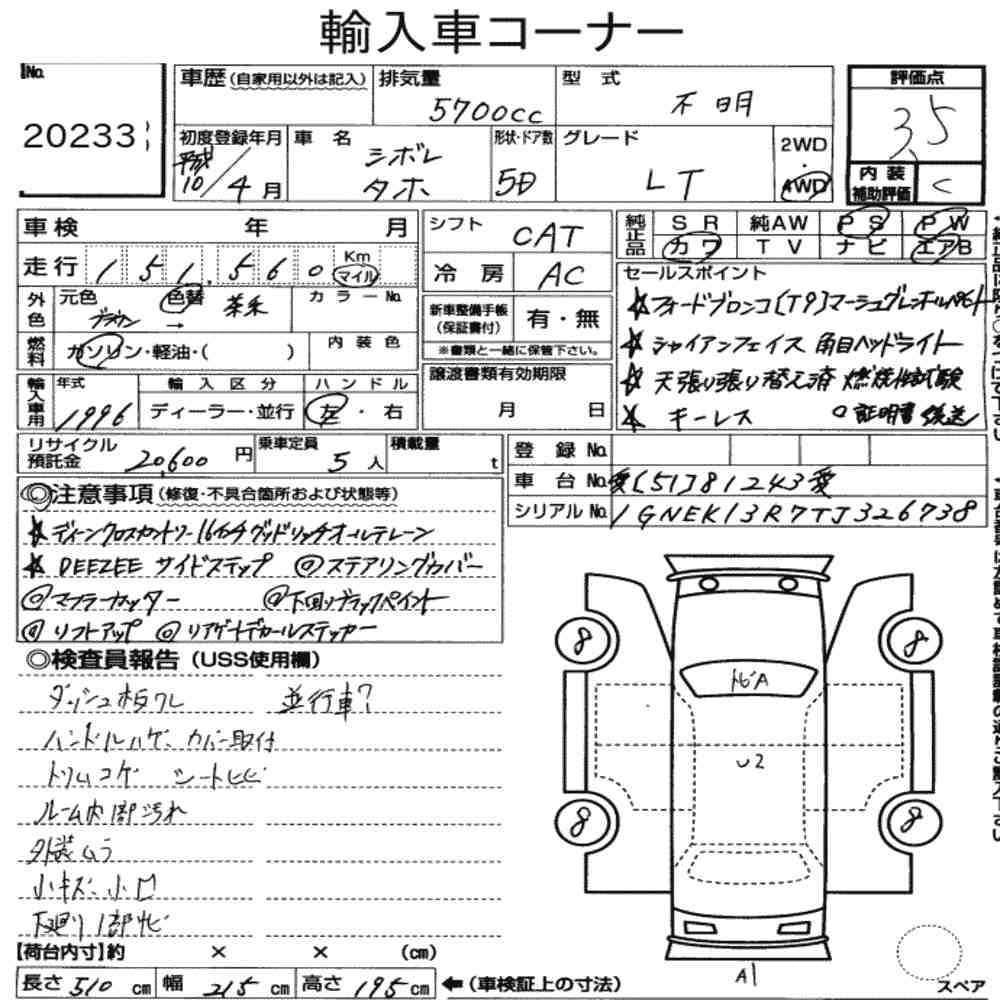 輸入車コーナー
No. 20233
車歴(自家用以外は記入)
排気量 5700cc
型式 不明
評価点 3.5
初度登録年月 平成10/4月
車名 シボレ タホ
形状・ドア数 5D
グレード LT
2WD・4WD
内装補助評価 C
車検 年 月
シフト CAT
純正品 SR 純AW PS PW
カワ TV ナビ エアB
走行 151,560 Km マイル
冷房 AC
セールスポイント
☆フォードブロンコ(T9)マーシュグレンホルペイント
☆シャイアンフェイス 角目ヘッドライト
☆天張り張り替え済 燃焼性試験
☆キーレス ○証明書後送
外色 元色 ブラウン → 色替 茶系 カラーNo.
新車整備手帳(保証書付) 有・無
※書類と一緒に保管下さい。
燃料 ガソリン・軽油・( ) 内装色
譲渡書類有効期限 月 日
輸入車用 年式 1996
輸入区分 ディーラー・並行
ハンドル 左・右
リサイクル預託金 20,600円
乗車定員 5人
積載量 t
登録No.
車台No. 愛[51]81243愛
シリアルNo. 1GNEK13R7TJ326738
◎注意事項(修復・不具合箇所および状態等)
☆ディーンクロスカントリー16インチグッドリッチオールテレーン
☆DEEZEE サイドステップ ◎ステアリングカバー
◎マフラーカッター ◎下回りブラックペイント
◎リフトアップ ◎リアゲートデカールステッカー
◎検査員報告(USS使用欄)
ダッシュ板ワレ 並行車?
ハンドルハゲ、カバー取付
トリムコゲ シートヒビ
ルーム内部汚れ
外装ムラ
小キズ、小凹
下廻り1部サビ
【荷台内寸】約 × × (cm)
長さ 510 cm 幅 215 cm 高さ 195 cm ←(車検証上の寸法)
8 8
トビA
U2
8 8
A1
スペア